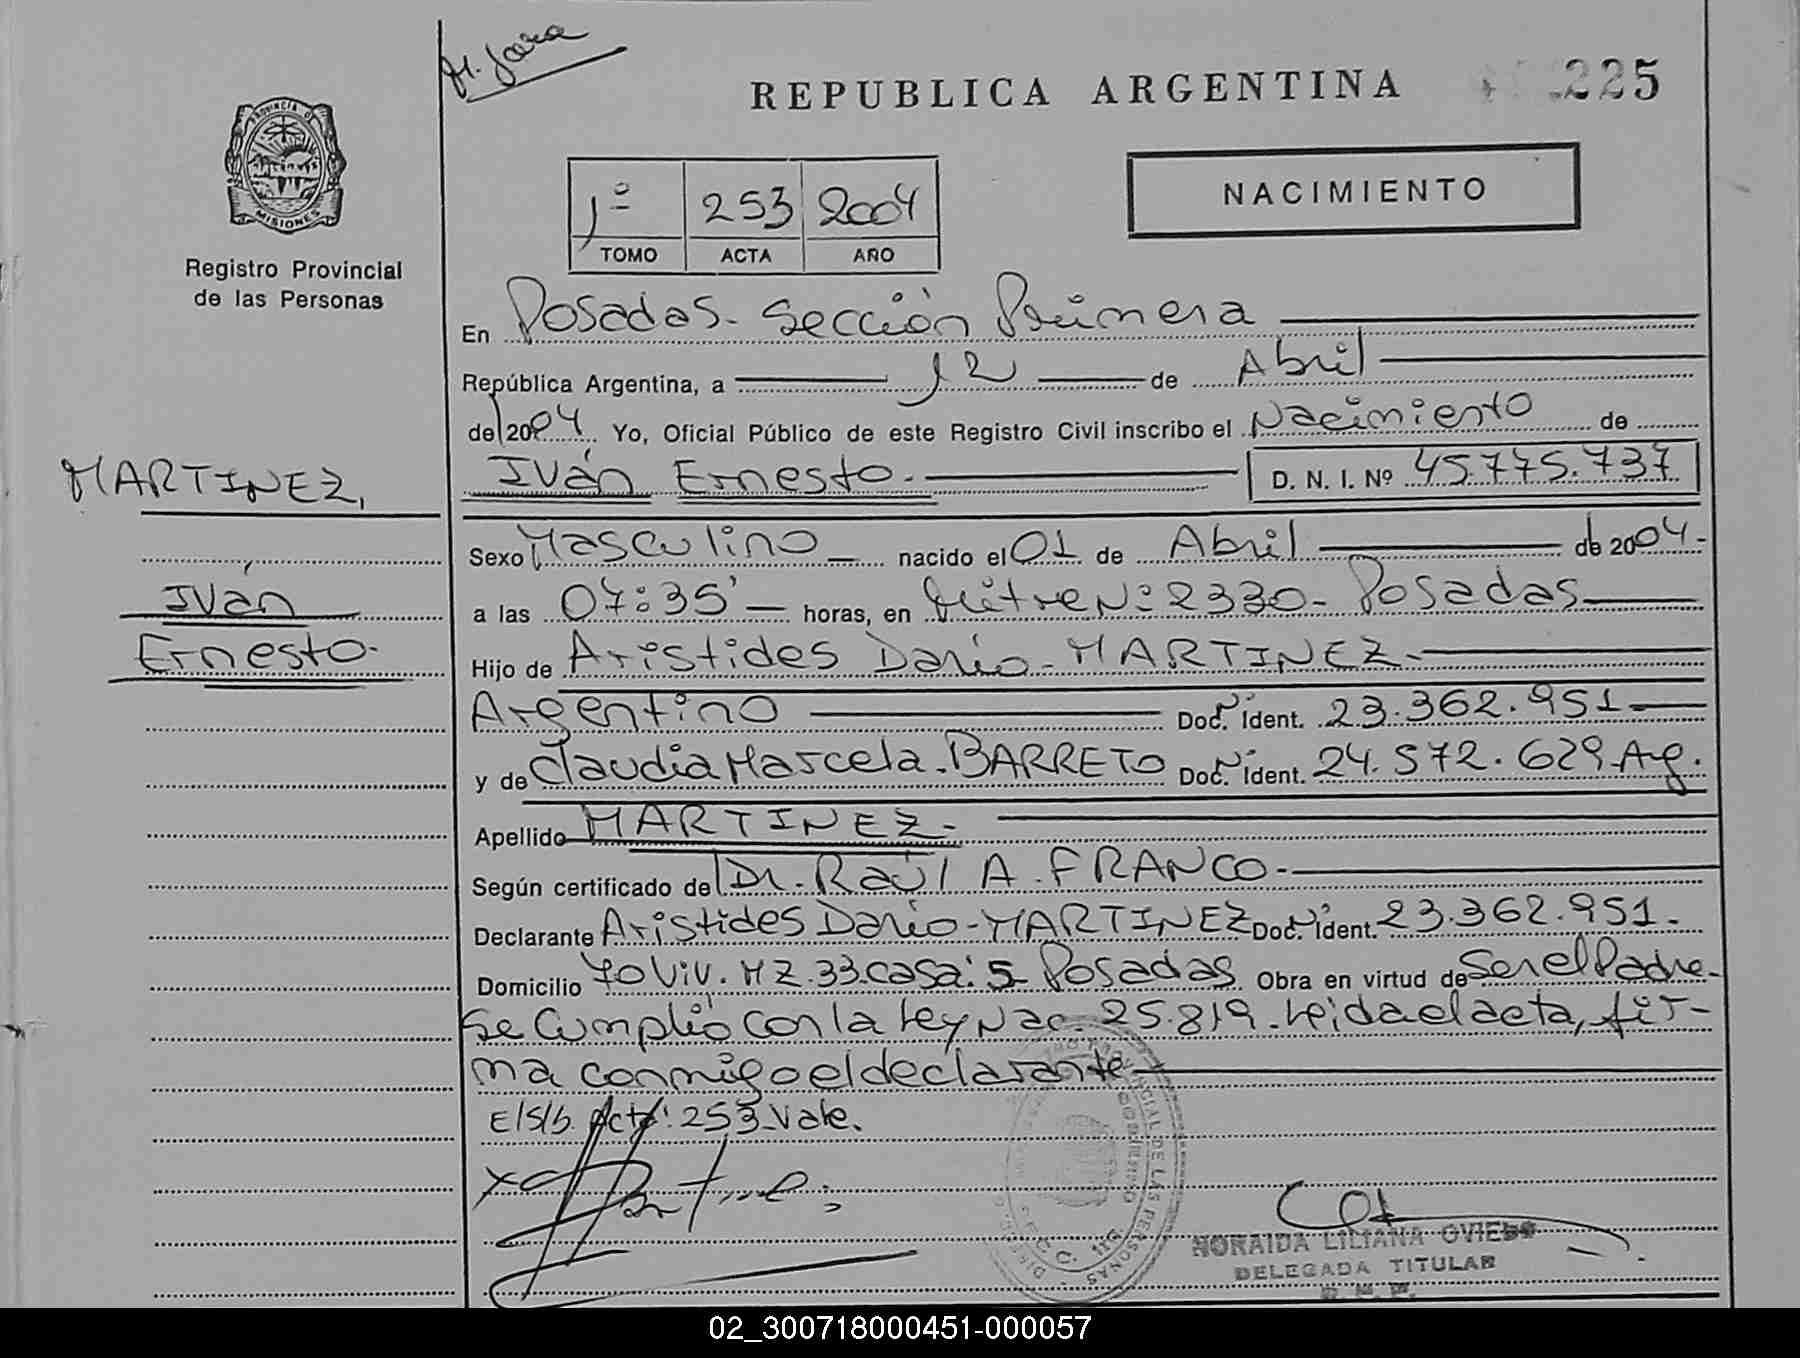 M. Jara
REPUBLICA ARGENTINA 225
PROVINCIA DE MISIONES
Registro Provincial
de las Personas
NACIMIENTO
1º 253 2004
TOMO ACTA AÑO
En Posadas. Sección Primera
República Argentina, a 12 de Abril
de 2004 Yo, Oficial Público de este Registro Civil inscribo el Nacimiento de
MARTINEZ,
Iván Ernesto. D. N. I. Nº 45.775.737
Sexo Masculino nacido el 01 de Abril de 2004-
Iván
Ernesto.
a las 07:35' horas, en Mitre Nº 2330- Posadas
Hijo de Aristides Dario-MARTINEZ-
Argentino Doc. Nº Ident. 23.362.951-
y de Claudia Marcela-BARRETO Doc. Nº Ident. 24.572.629 Arg.
Apellido MARTINEZ-
Según certificado de Dr. Raúl A. FRANCO-
Declarante Aristides Dario-MARTINEZ Doc. Nº Ident. 23.362.951-
Domicilio 70 Viv. MZ.33-casa: 5- Posadas Obra en virtud de Ser el Padre-
Se Cumplió con la Ley Nac. 25.819-Leída el acta, fir-
ma conmigo el declarante
E/S/b. Acta: 253-Vale.
REGISTRO PROVINCIAL DE LAS PERSONAS
NORAIDA LILIANA OVIEDO
DELEGADA TITULAR
02_300718000451-000057